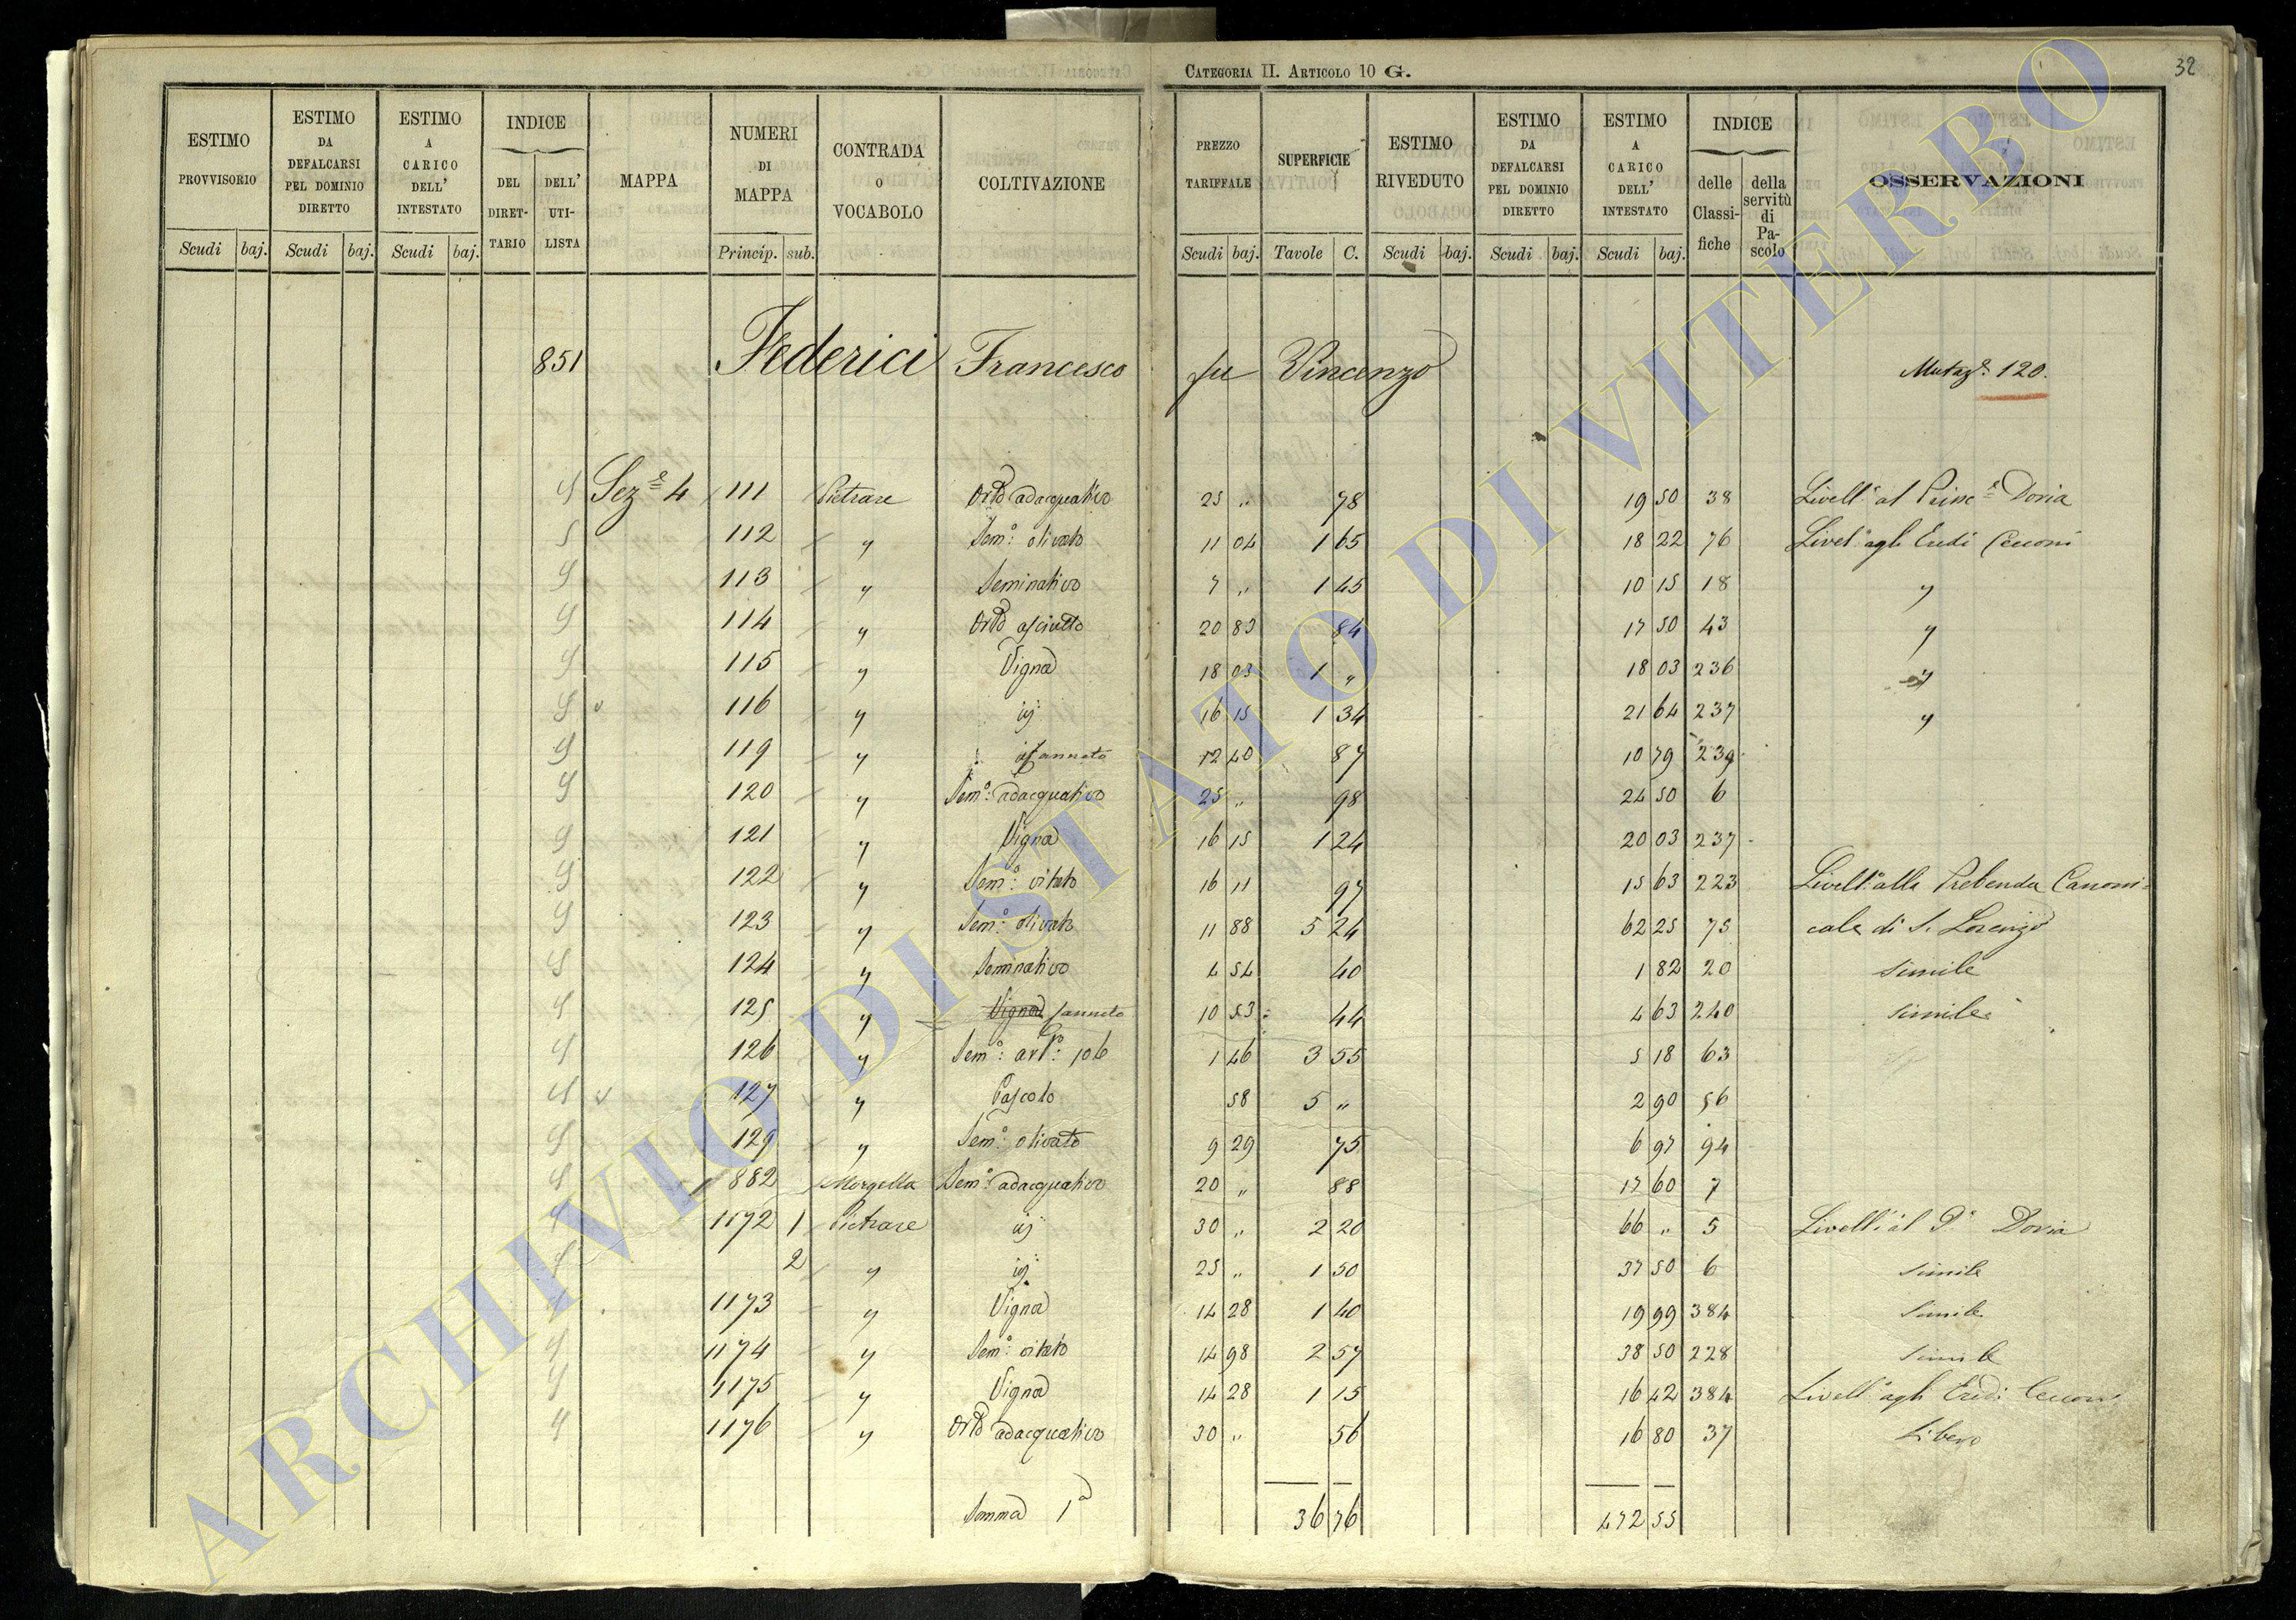 CATEGORIA II. ARTICOLO 10 G.
32
ESTIMO PROVVISORIO Scudi baj.
ESTIMO DA DEFALCARSI PEL DOMINIO DIRETTO Scudi baj.
ESTIMO A CARICO DELL' INTESTATO Scudi baj.
INDICE DEL DIRET-TARIO DELL' UTI-LISTA
MAPPA
NUMERI DI MAPPA Princip. sub.
CONTRADA O VOCABOLO
COLTIVAZIONE
PREZZO TARIFFALE Scudi baj.
SUPERFICIE Tavole C.
ESTIMO RIVEDUTO Scudi baj.
ESTIMO DA DEFALCARSI PEL DOMINIO DIRETTO Scudi baj.
ESTIMO A CARICO DELL' INTESTATO Scudi baj.
INDICE delle Classi-fiche della servitù di Pa-scolo
OSSERVAZIONI
851 Federici Francesco fu Vincenzo Mutaz.e 120.
Sez.e 4 111 Pietrare Orto adacquativo 25 " 78 19 50 38 Livell.o al Princ.e Doria
112 " Sem.o olivato 11 04 1 65 18 22 76 Livel.o agli Eredi Cecconi
113 " Seminativo 7 " 1 45 10 15 18 "
114 " Orto asciutto 20 83 84 17 50 43 "
115 " Vigna 18 03 1 " 18 03 236 "
116 " id 16 15 1 34 21 64 237 "
119 " id canneto 12 40 87 10 79 239
120 " Sem.o adacquativo 25 " 98 24 50 6
121 " Vigna 16 15 1 24 20 03 237
122 " Sem.o vitato 16 11 97 15 63 223 Livell.o alla Prebenda Canoni-
123 " Sem.o olivato 11 88 5 24 62 25 75 cale di S. Lorenzo
124 " Seminativo 4 54 40 1 82 20 Simile
125 " Vigna Canneto 10 53 44 4 63 240 Simile
126 " Sem.o art.o 106 1 46 3 55 5 18 63
127 " Pascolo 58 5 " 2 90 56
129 " Sem.o olivato 9 29 75 6 97 94
882 Morgella Sem.o adacquativo 20 " 88 17 60 7
1172 1 Pietrare id 30 " 2 20 66 " 5 Livell.o al P.e Doria
2 " id 25 " 1 50 37 50 6 Simile
1173 " Vigna 14 28 1 40 19 99 384 Simile
1174 " Sem.o vitato 14 98 2 57 38 50 228 Simile
1175 " Vigna 14 28 1 15 16 42 384 Livell.o agli Eredi Cecconi
1176 " Orto adacquativo 30 " 56 16 80 37 Libero
Somma 1a 36 76 472 55
ARCHIVIO DI STATO DI VITERBO